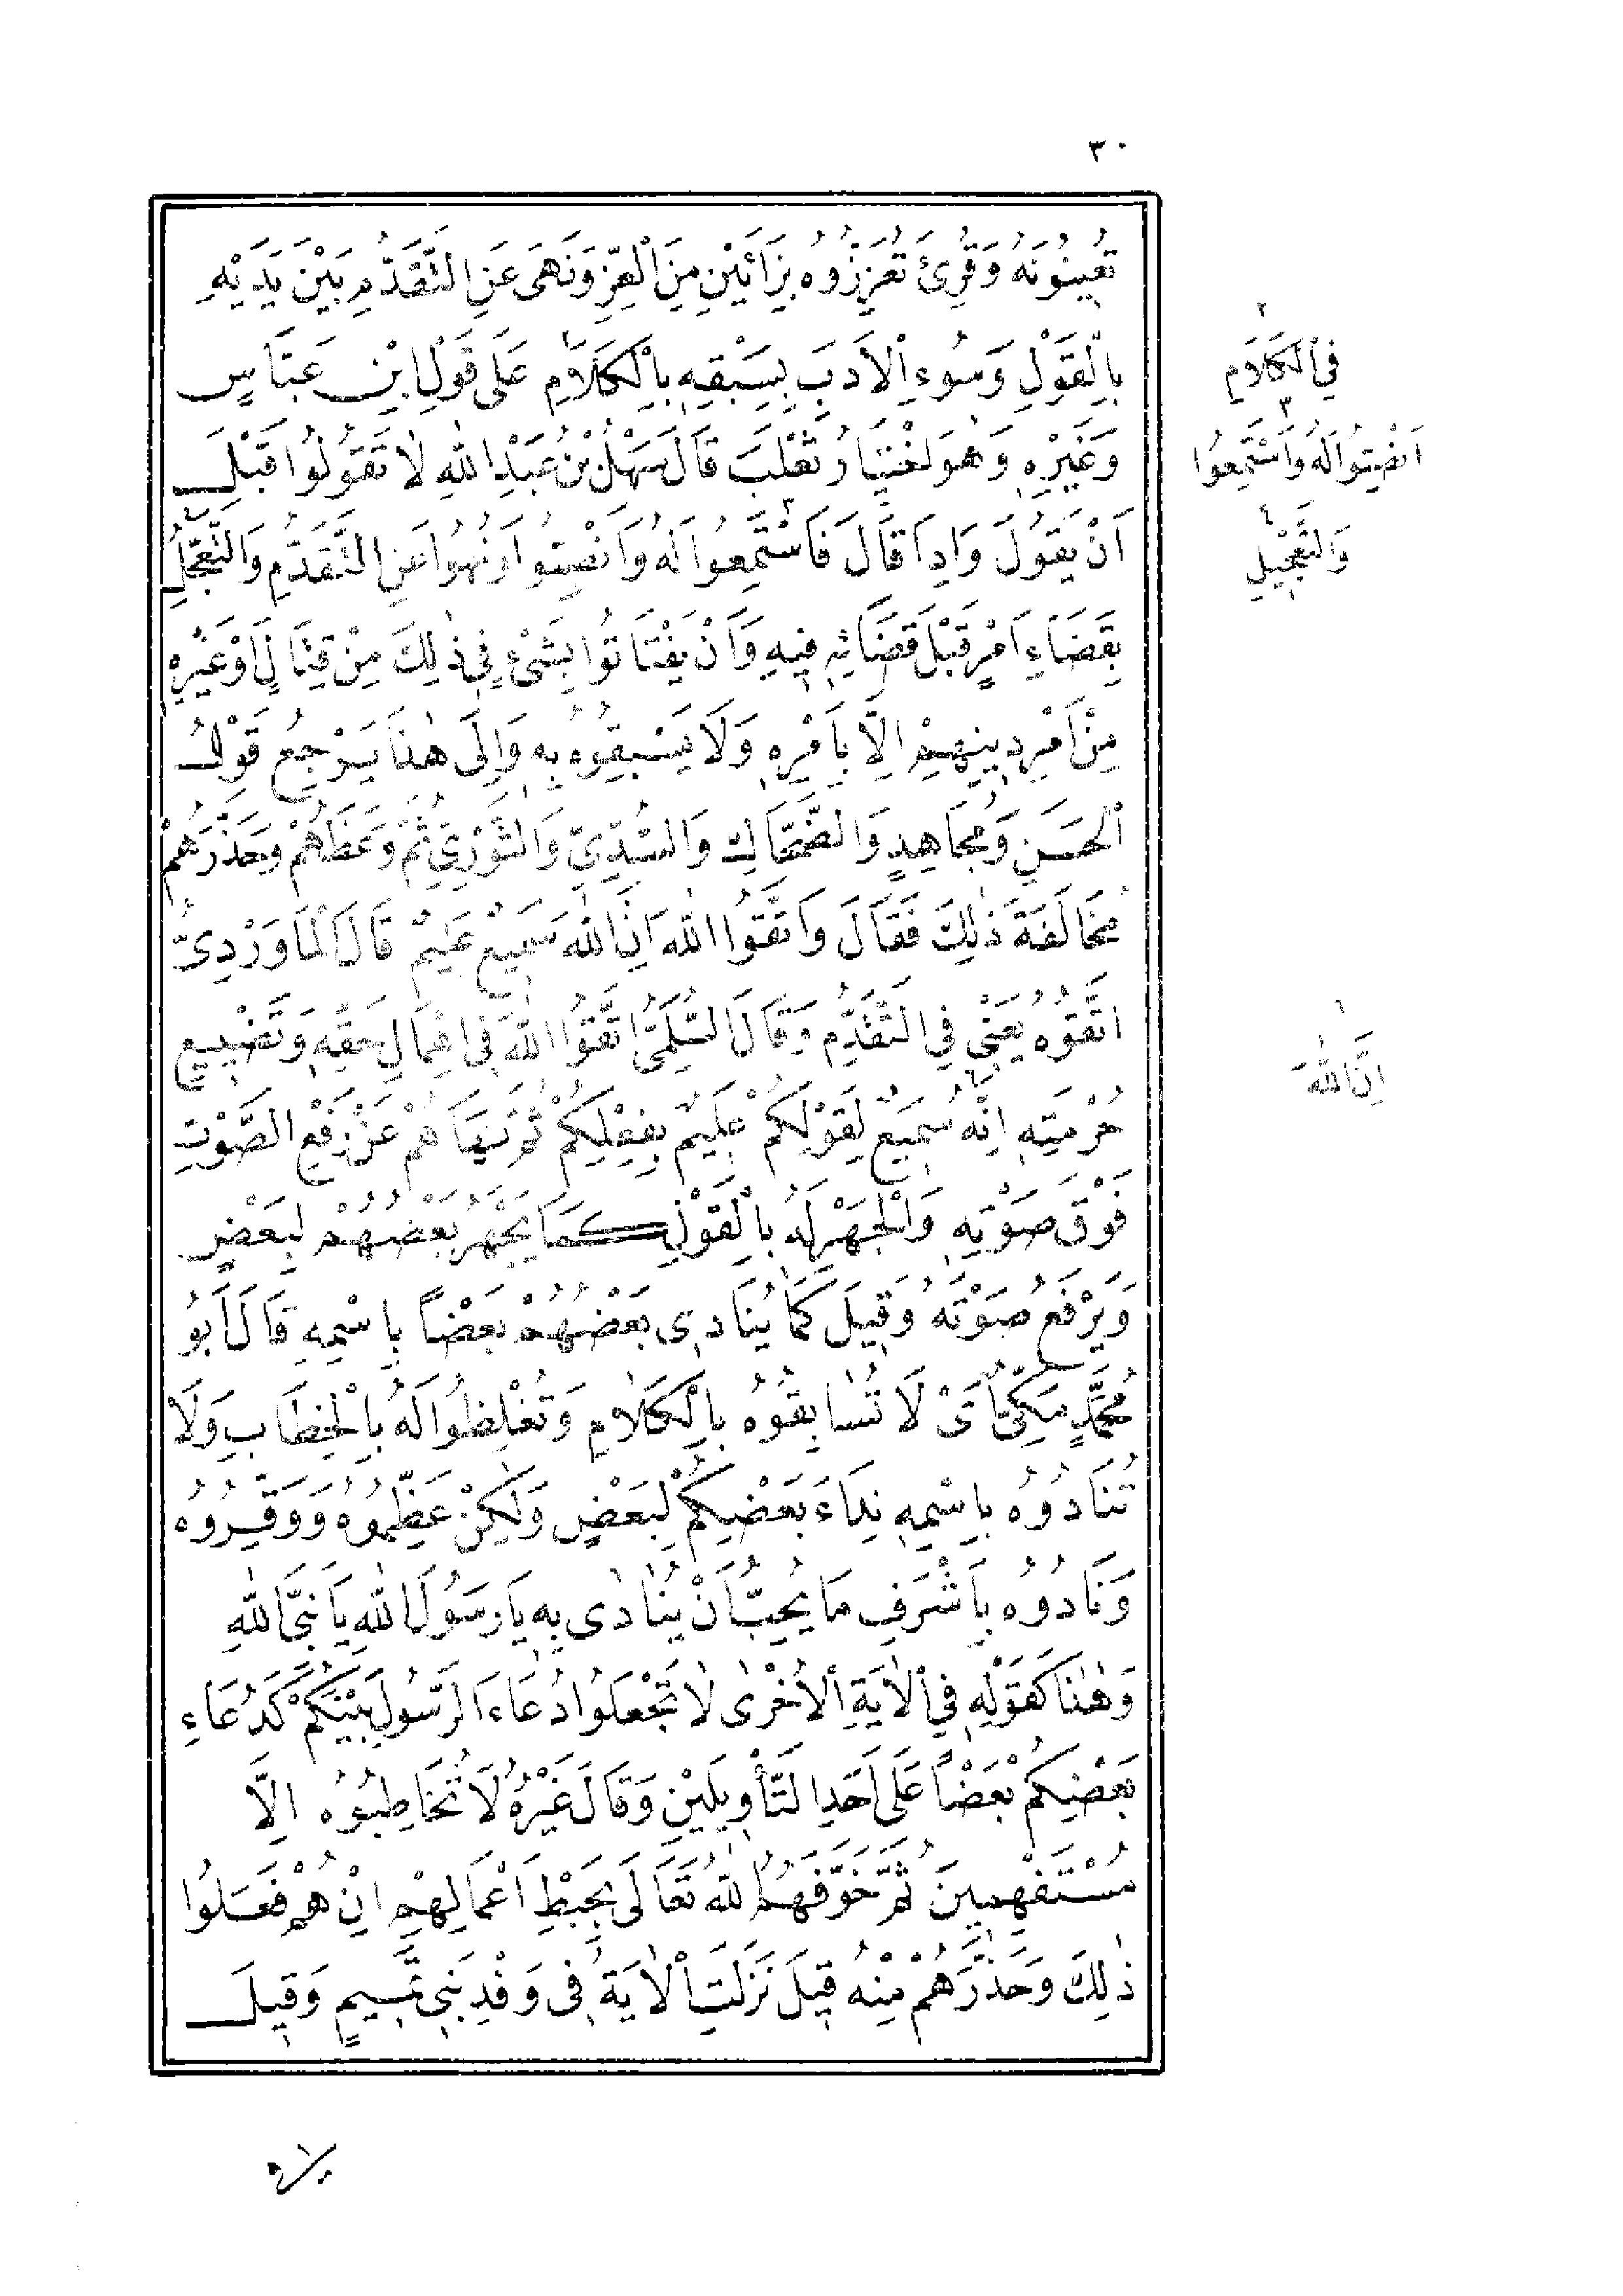 ٣٠
تُعِينُونَهُ وَقُرِئَ تُعَزِّزُوهُ بِزَائَيْنِ مِنَ الْعِزِّ وَنَهَى عَنِ التَّقَدُّمِ بَيْنَ يَدَيْهِ
بِالْقَوْلِ وَسُوءِ الْأَدَبِ بِسَبْقِهِ بِالْكَلَامِ عَلَى قَوْلِ ابْنِ عَبَّاسٍ
وَغَيْرِهِ وَهُوَ اخْتِيَارُ ثَعْلَبَ قَالَ سَهْلُ بْنُ عَبْدِ اللّٰهِ لَا تَقُولُوا قَبْلَ
اَنْ يَقُولَ وَاِذَا قَالَ فَاسْتَمِعُوا لَهُ وَاَنْصِتُوا وَنُهُوا عَنِ التَّقَدُّمِ وَالتَّعَجُّلِ
بِقَضَاءِ اَمْرٍ قَبْلَ قَضَائِهِ فِيهِ وَاَنْ يَفْتَاتُوا بِشَىْءٍ فِى ذٰلِكَ مِنْ قِتَالٍ اَوْ غَيْرِهِ
مِنْ اَمْرِ دِينِهِمْ اِلَّا بِاَمْرِهِ وَلَا يَسْبِقُوهُ بِهِ وَاِلَى هٰذَا يَرْجِعُ قَوْلُ
الْحَسَنِ وَمُجَاهِدٍ وَالضَّحَّاكِ وَالسُّدِّىِّ وَالثَّوْرِىِّ ثُمَّ وَعَظَهُمْ وَحَذَّرَهُمْ
مُخَالَفَةَ ذٰلِكَ فَقَالَ وَاتَّقُوا اللّٰهَ اِنَّ اللّٰهَ سَمِيعٌ عَلِيمٌ قَالَ الْمَاوَرْدِىُّ
اتَّقُوهُ يَعْنِى فِى التَّقَدُّمِ وَقَالَ السُّلَمِىُّ اتَّقُوا اللّٰهَ فِى اِهْمَالِ حَقِّهِ وَتَضْيِيعِ
حُرْمَتِهِ اِنَّهُ سَمِيعٌ لِقَوْلِكُمْ عَلِيمٌ بِفِعْلِكُمْ ثُمَّ نَهَاهُمْ عَنْ رَفْعِ الصَّوْتِ
فَوْقَ صَوْتِهِ وَالْجَهْرِ لَهُ بِالْقَوْلِ كَمَا يَجْهَرُ بَعْضُهُمْ لِبَعْضٍ
وَيَرْفَعُ صَوْتَهُ وَقِيلَ كَمَا يُنَادِى بَعْضُهُمْ بَعْضًا بِاسْمِهِ قَالَ اَبُو
مُحَمَّدٍ مَكِّىٌّ اَىْ لَا تُسَابِقُوهُ بِالْكَلَامِ وَتُغْلِظُوا لَهُ بِالْخِطَابِ وَلَا
تُنَادُوهُ بِاسْمِهِ نِدَاءَ بَعْضِكُمْ لِبَعْضٍ وَلٰكِنْ عَظِّمُوهُ وَوَقِّرُوهُ
وَنَادُوهُ بِاَشْرَفِ مَا يُحِبُّ اَنْ يُنَادٰى بِهِ يَا رَسُولَ اللّٰهِ يَا نَبِىَّ اللّٰهِ
وَهٰذَا كَقَوْلِهِ فِى الْاٰيَةِ الْاُخْرٰى لَا تَجْعَلُوا دُعَاءَ الرَّسُولِ بَيْنَكُمْ كَدُعَاءِ
بَعْضِكُمْ بَعْضًا عَلَى اَحَدِ التَّأْوِيلَيْنِ وَقَالَ غَيْرُهُ لَا تُخَاطِبُوهُ اِلَّا
مُسْتَفْهِمِينَ ثُمَّ خَوَّفَهُمُ اللّٰهُ تَعَالَى بِحَبْطِ اَعْمَالِهِمْ اِنْ هُمْ فَعَلُوا
ذٰلِكَ وَحَذَّرَهُمْ مِنْهُ قِيلَ نَزَلَتِ الْاٰيَةُ فِى وَفْدِ بَنِى تَمِيمٍ وَقِيلَ
٢
فِى الْكَلَامِ
٣
اَنْصِتُوا لَهُ وَاسْتَمِعُوا
٤
وَالتَّعْجِيلِ
٦
اِنَّ اللّٰهَ